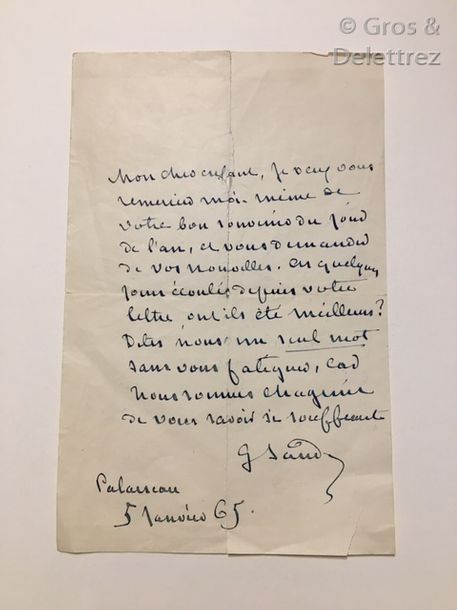 © Gros &
Delettrez
Mon cher enfant, je veux vous
remercier moi-même de
votre bon souvenir du jour
de l'an, et vous demander
de vos nouvelles. Ces quelques
jours écoulés depuis votre
lettre ont ils été meilleurs?
Dites nous un seul mot
sans vous fatiguer, car
nous sommes chagrins
de vous savoir si souffrante
G Sand
Palaiseau
5 Janvier 65.